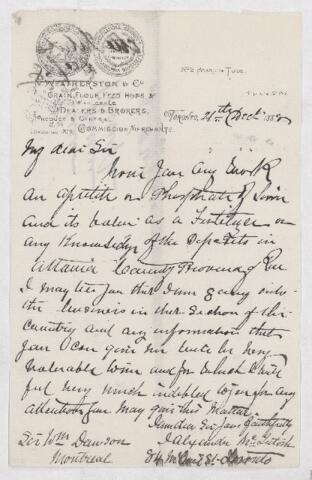 Featherston & Co
Grain, Flour, Feed Hops &
Wholesale
Dealers & Brokers,
Produce & General
Commission Merchants.
Toronto, 21th Dec 188
My dear Sir
Have you any work
on apetite or Phosphate of Lime
and its Value as a Fertilizer or
any Knowledge of the Deposits in
Ottawa County Province of Que
I may tell you that I am going into
the business in that Section of the
Country and any information that
you can give me will be very
valuable to me and for which I will
feel very much indebted to you for any
attention you may give this Matter
I am Dear Sir Yours faithfully
Alexander
Sir Wm Dawson
Montreal
St Toronto